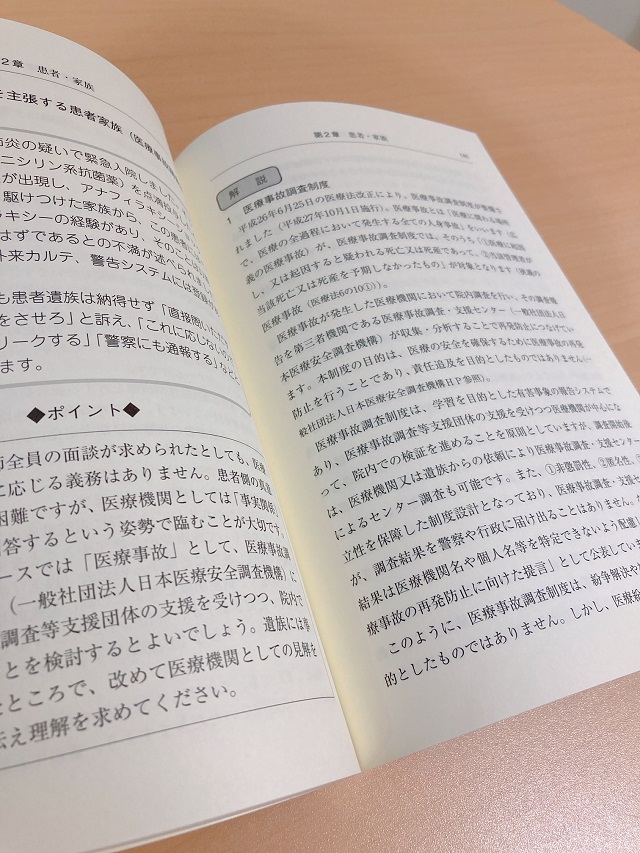 ２章　患者・家族
を主張する患者家族（医療事故
市炎の疑いで緊急入院しました
ニシリン系抗菌薬）を点滴
が出現し、アナフィラキシ
駆けつけた家族から、この患
ラキシーの経験があり、そのこと
はずであるとの不満が述べられま
外来カルテ、警告システムには
も患者遺族は納得せず「直接
をさせろ」と訴え、「これに応じない
リークする」「警察にも通報する」など
ます。
◆ポイント◆
師全員の面談が求められたとしても、医療
に応じる義務はありません。患者側の
困難ですが、医療機関としては「事実関係
回答するという姿勢で臨むことが大切です
ースでは「医療事故」として、医療事故調
（一般社団法人日本医療安全調査機構）に
調査等支援団体の支援を受けつつ、院内で
ことを検討するとよいでしょう。遺族には
たところで、改めて医療機関としての見解を
伝え理解を求めてください。
第２章　患者・家族
解　説
１　医療事故調査制度
平成26年６月25日の医療法改正により、医療事故調査制度が整備さ
れました（平成27年10月１日施行）。医療事故とは「医療に関わる場所
で、医療の全過程において発生する全ての人身事故」をいいます（広
義の医療事故）が、医療事故調査制度では、そのうち「①医療に起因
し、又は起因すると疑われる死亡又は死産であって、②当該管理者が
当該死亡又は死産を予期しなかったもの」が対象となります（狭義の
医療事故（医療法６の10①））。
医療事故が発生した医療機関において院内調査を行い、その調査報
告を第三者機関である医療事故調査・支援センター（一般社団法人日
本医療安全調査機構）が収集・分析することで再発防止につなげてい
ます。本制度の目的は、医療の安全を確保するために医療事故の再発
防止を行うことであり、責任追及を目的としたものではありません（一
般社団法人日本医療安全調査機構ＨＰ参照）。
医療事故調査制度は、学習を目的とした有害事象の報告システムで
あり、医療事故調査等支援団体の支援を受けつつ医療機関が中心にな
って、院内での検証を進めることを原則としていますが、調査開始後
は、医療機関又は遺族からの依頼により医療事故調査・支援センター
によるセンター調査も可能です。また、①非懲罰性、②匿名性、③
立性を保障した制度設計となっており、医療事故調査・支援セン
が、調査結果を警察や行政に届け出ることはありません。
結果は医療機関名や個人名等を特定できないよう配慮し
療事故の再発防止に向けた提言」として公表していま
このように、医療事故調査制度は、紛争解決や
的としたものではありません。しかし、医療紛